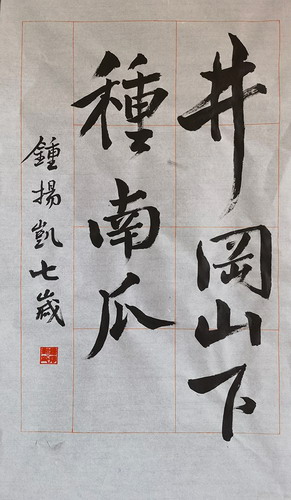 井岡山下
種南瓜
鍾揚凱七歲